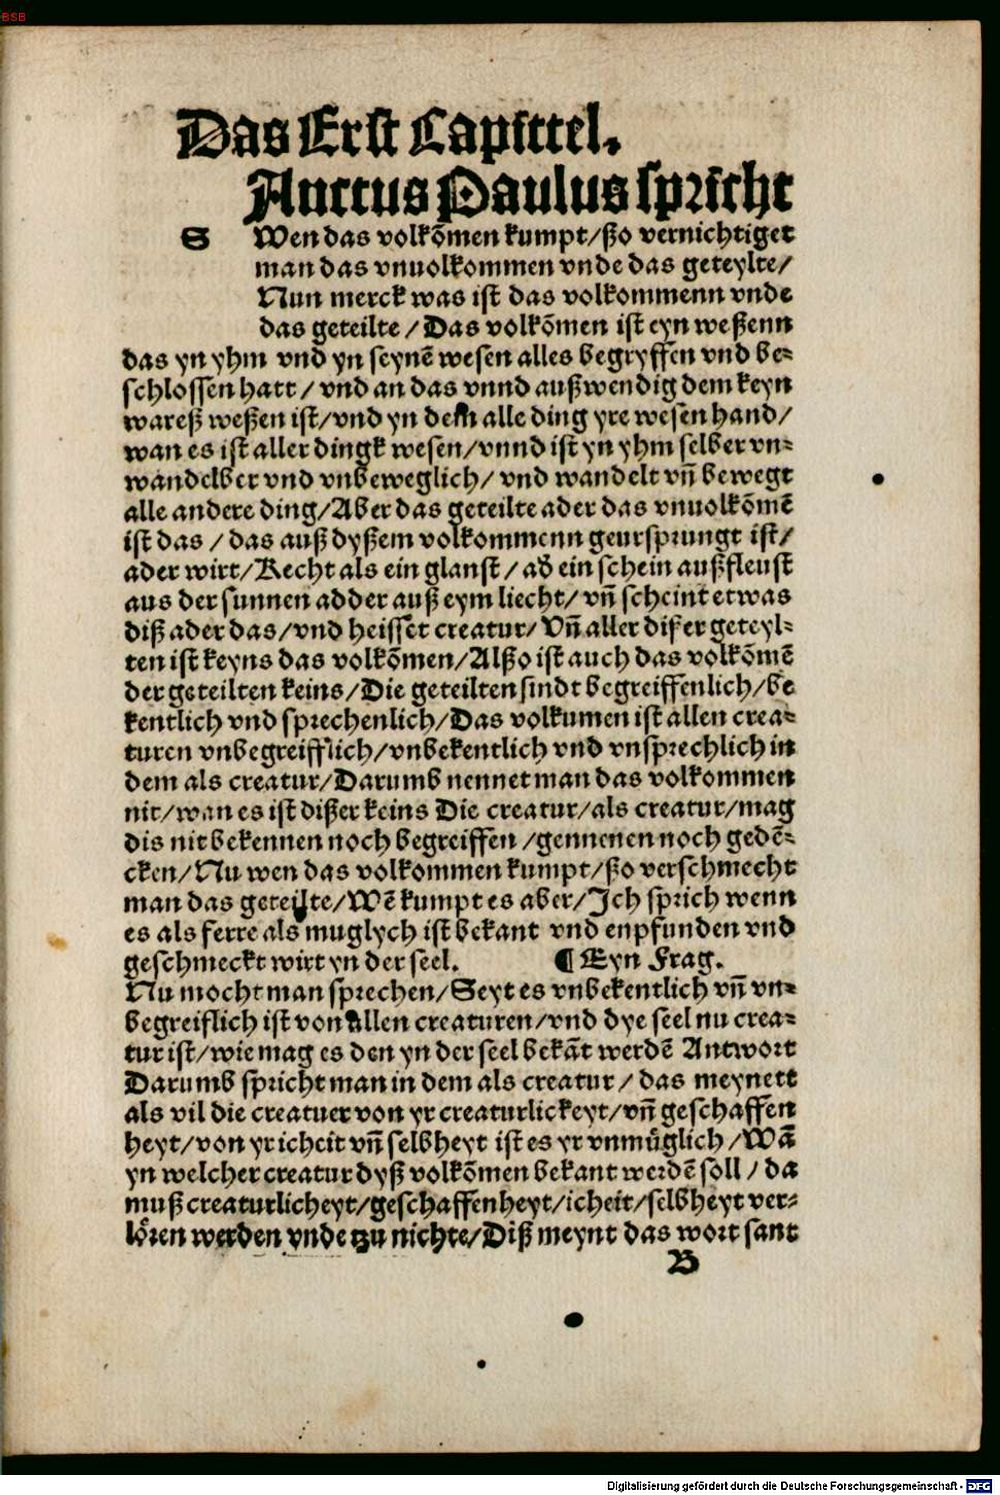 BSB
Das Erst Capittel.
Anctus Paulus spricht
S Wen das volkōmen kumpt/ßo vernichtiget
man das vnuolkommen vnde das geteylte/
Nun merck was ist das volkommenn vnde
das geteilte/Das volkōmen ist eyn weßenn
das yn yhm vnd yn seynē wesen alles begryffen vnd be⸗
schlossen hatt/vnd an das vnnd außwendig dem keyn
wareß weßen ist/vnd yn dem alle ding yre wesen hand/
wan es ist aller dingk wesen/vnnd ist yn yhm selber vn⸗
wandelber vnd vnbeweglich/vnd wandelt vn̄ bewegt
alle andere ding/Aber das geteilte ader das vnuolkōmē
ist das/das auß dyßem volkommenn geursprungt ist/
ader wirt/Recht als ein glanst/ab ein schein außfleust
aus der sunnen adder auß eym liecht/vn̄ scheint etwas
diß ader das/vnd heisset creatur/Vn̄ aller dißer geteyl⸗
ten ist keyns das volkōmen/Alßo ist auch das volkōmē
der geteilten keins/Die geteilten sindt begreiffenlich/be
kentlich vnd sprechenlich/Das volkumen ist allen crea⸗
turen vnbegreifflich/vnbekentlich vnd vnsprechlich in
dem als creatur/Darumb nennet man das volkommen
nit/wan es ist dißer keins Die creatur/als creatur/mag
dis nit bekennen noch begreiffen/gennenen noch gedē⸗
cken/Nu wen das volkommen kumpt/ßo verschmecht
man das geteilte/Wē kumpt es aber/Ich sprich wenn
es als ferre als muglych ist bekant vnd enpfunden vnd
geschmeckt wirt yn der seel. ¶ Eyn Frag.
Nu mocht man sprechen/Seyt es vnbekentlich vn̄ vn⸗
begreiflich ist von allen creaturen/vnd dye seel nu crea⸗
tur ist/wie mag es den yn der seel bekāt werdē Antwort
Darumb spricht man in dem als creatur/das meynett
als vil die creatuer von yr creaturlickeyt/vn̄ geschaffen
heyt/von yr icheit vn̄ selbheyt ist es yr vnmüglich/Wā
yn welcher creatur dyß volkōmen bekant werdē soll/da
muß creaturlicheyt/geschaffenheyt/icheit/selbheyt ver⸗
lören werden vnde zu nichte/Diß meynt das wort sant
B
Digitalisierung gefördert durch die Deutsche Forschungsgemeinschaft - DFG